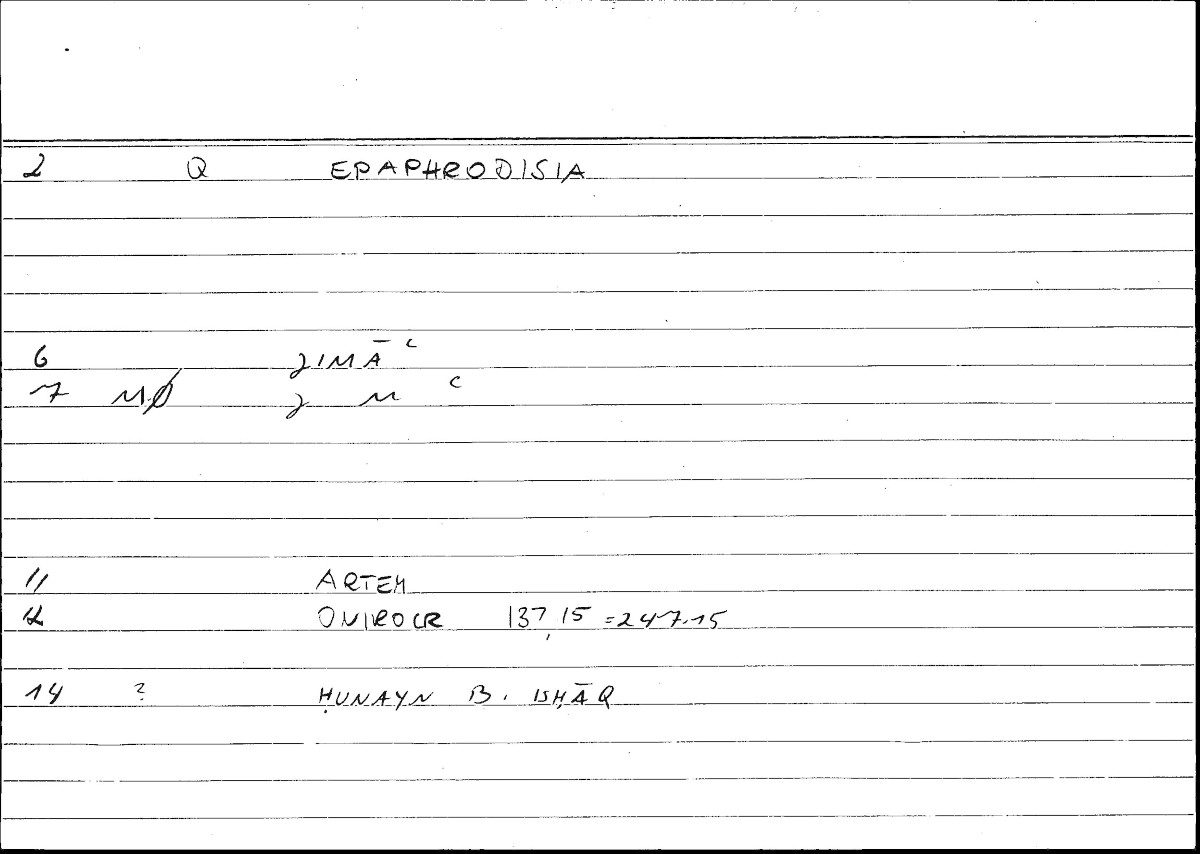 2 Q EPAPHRODISIA
6 ʒIMĀʿ
7 MØ ʒ M ʿ
11 ARTEM
12 ONIROCR 137,15 =247.15
14 ? ḤUNAYN B. ISḤĀQ